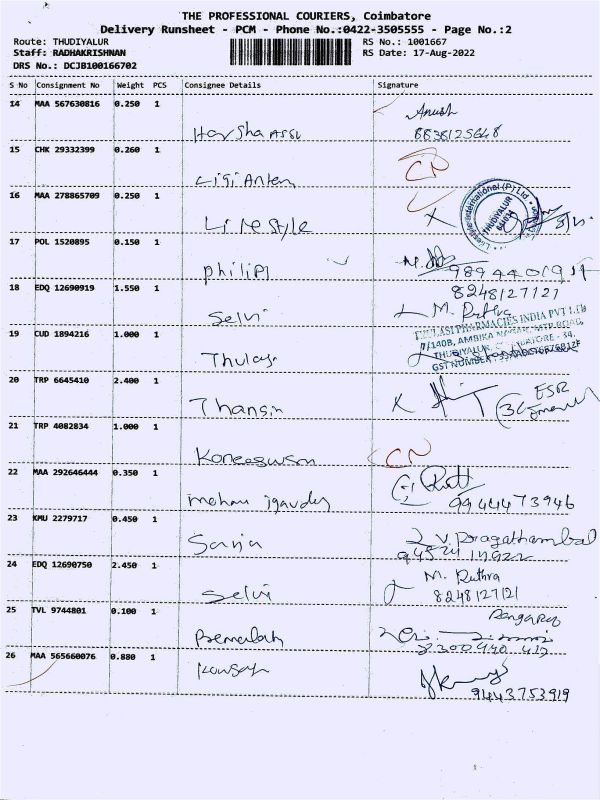 THE PROFESSIONAL COURIERS, Coimbatore
Delivery Runsheet - PCM - Phone No.:0422-3505555 - Page No.:2
Route: THUDIYALUR RS No.: 1001667
Staff: RADHAKRISHNAN RS Date: 17-Aug-2022
DRS No.: DCJB100166702
S No Consignment No Weight PCS Consignee Details Signature
14 MAA 567630816 0.250 1
8838125648
15 CHK 29332399 0.260 1
CN
16 MAA 278865709 0.250 1
Life style
THUDIYALUR
17 POL 1520895 0.150 1
Philips
18 EDQ 12690919 1.550 1 8248127121
Selvi M. Ruthra
19 CUD 1894216 1.000 1 THULASI PHARMACIES INDIA PVT LTD
7/140B, AMBIKA
Thulasi THUDIYALUR, COIMBATORE - 34.
GST NUMBER
20 TRP 6645410 2.400 1
21 TRP 4082834 1.000 1
CN
22 MAA 292646444 0.350 1
9944473946
23 KMU 2279717 0.450 1 V. Pragathambal
24 EDQ 12690750 2.450 1 M. Ruthra
Selvi 8248127121
25 TVL 9744801 0.100 1
26 MAA 565660076 0.880 1
9443753919